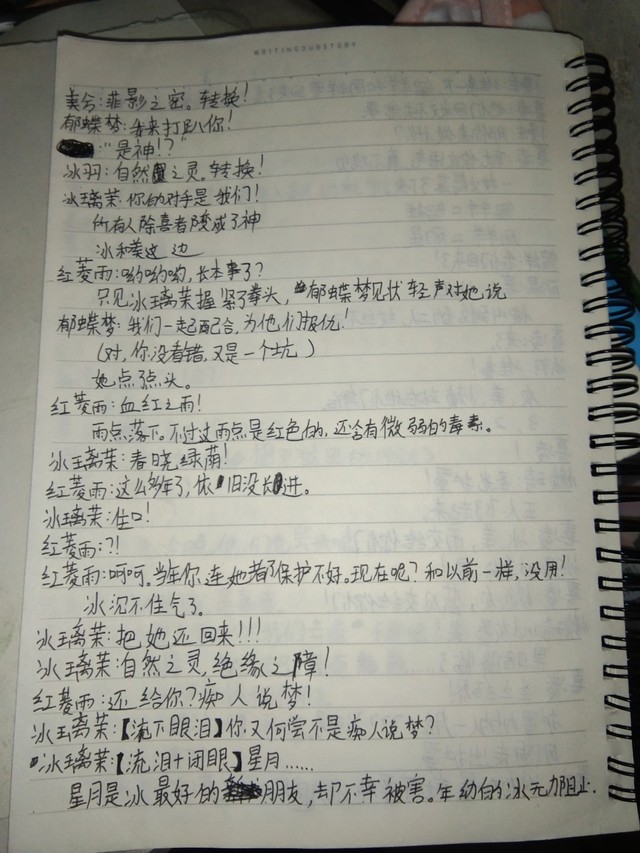 WRITINGOURSTORY
美兮:菲影之密。转换!
郁蝶梦:我来打趴你!
:"是神!?"
冰羽:自然之灵。转换!
冰璃茉:你的对手是我们!
所有人除喜者陵成了神
冰和美这边
红菱雨:哟哟哟,长本事了?
只见冰璃茉握紧了拳头,郁蝶梦见状轻声对她说
郁蝶梦:我们一起配合,为他们报仇!
(对,你没看错,又是一个坑)
她点点头。
红菱雨:血红之雨!
雨点落下。不过这雨点是红色的,还含有微弱的毒素。
冰璃茉:春晓绿荫!
红菱雨:这么多年了,依旧没长进。
冰璃茉:住口!
红菱雨:?!
红菱雨:呵呵。当年你连她都保护不好。现在呢?和以前一样,没用!
冰沉不住气了。
冰璃茉:把她还回来!!!
冰璃茉:自然之灵,绝缘之障!
红菱雨:还给你?痴人说梦!
冰璃茉:【流下眼泪】你又何尝不是痴人说梦?
冰璃茉:【流泪+闭眼】星月……
星月是冰最好的朋友,却不幸被害。年幼的冰无力阻止.